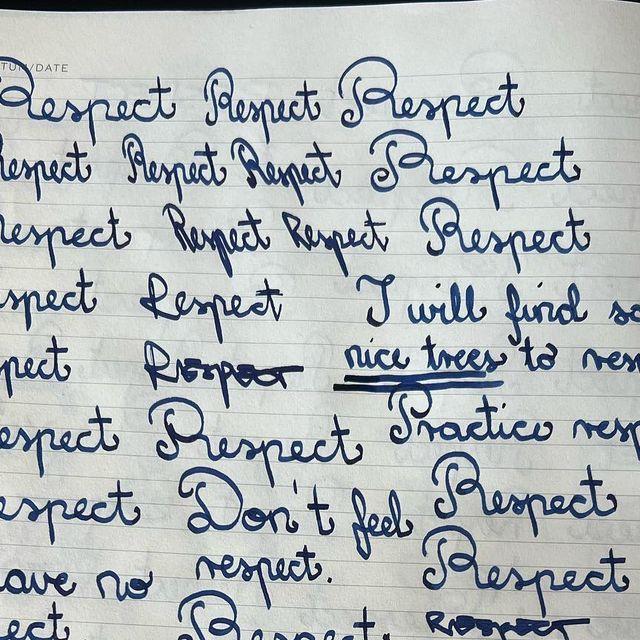 /DATE
Respect Respect Respect
Respect Respect Respect Respect
Respect Respect Respect Respect
spect Respect I will find so
pect Respect nice trees to res
espect Respect Practice resp
espect Don't feel Respect
ave no respect. Respect
ect Respect. Respect